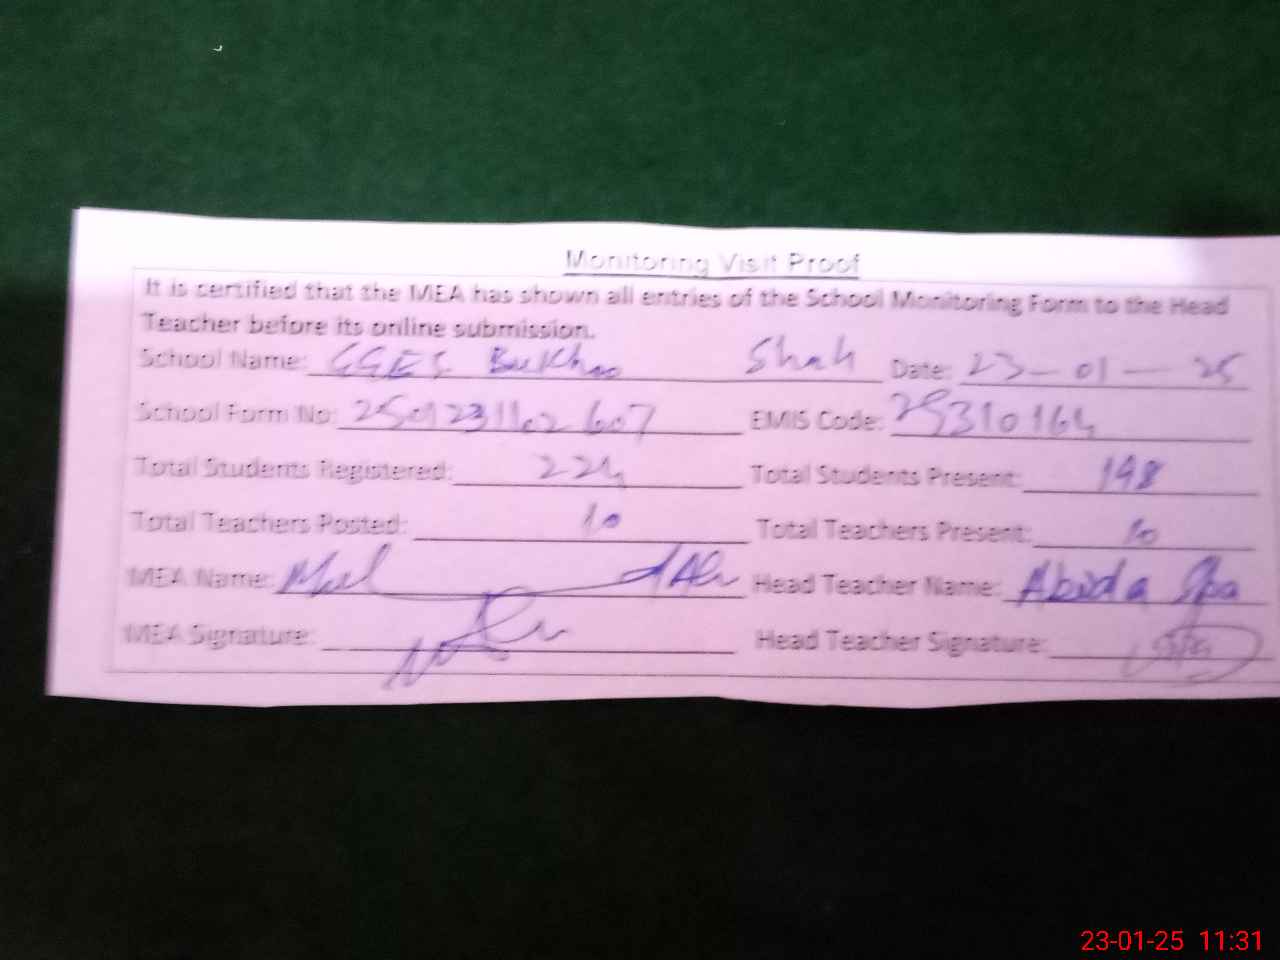 Monitoring Visit Proof
It is certified that the MEA has shown all entries of the School Monitoring Form to the Head
Teacher before its online submission.
School Name: GGES Shah Date: 23-01-25
School Form No: 2501231102607 EMIS Code:
Total Students Registered: 224 Total Students Present: 198
Total Teachers Posted: 10 Total Teachers Present: 10
MEA Name: Head Teacher Name: Abida
MEA Signature: Head Teacher Signature:
23-01-25 11:31